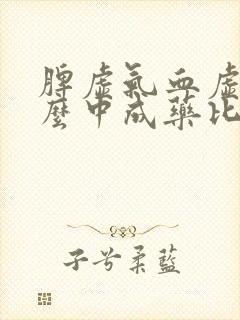 脾虛氣血虛
麽中成藥比
子兮柔藍